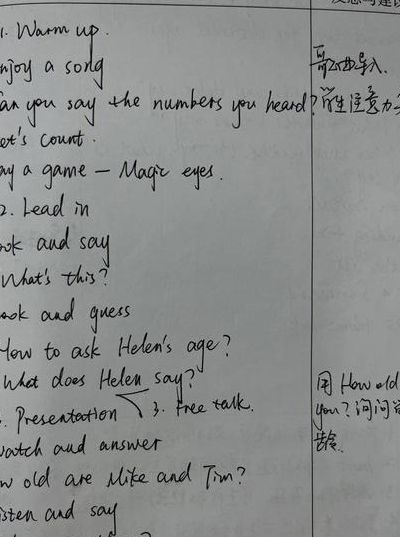 1. Warm up.
njoy a song
an you say the numbers you heard?
et's count.
ay a game — Magic eyes.
2. Lead in
ook and say
What's this?
ook and guess
How to ask Helen's age?
What does Helen say?
. Presentation 3. Free talk.
watch and answer
w old are Mike and Tim?
isten and say
歌曲导入.
学生注意力
用 How old
you? 问问
龄.